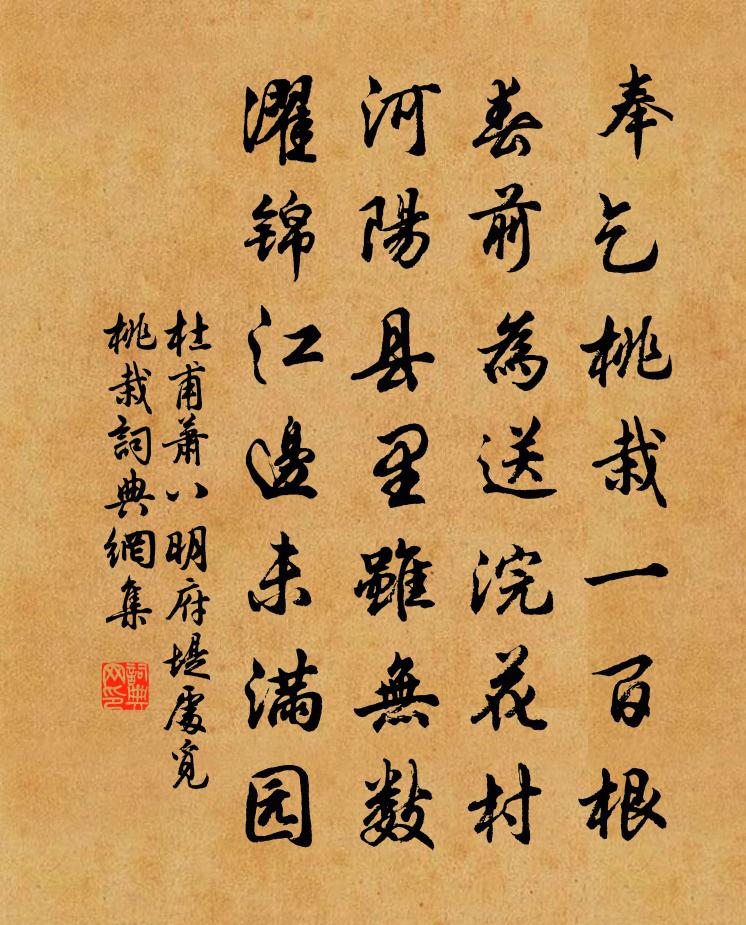 奉乞桃栽一百根
春前為送浣花村
河陽县里雖無数
濯锦江邊未满园
杜甫蕭八明府堤處覓
桃栽詞典網集
詞典网印